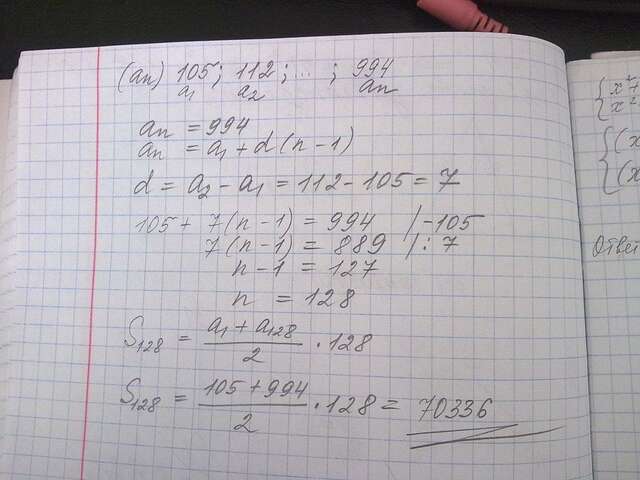 (an) 105; 112; ...; 994
a₁ a₂ an
an = 994
an = a₁ + d(n-1)
d = a₂ - a₁ = 112 - 105 = 7
105 + 7(n-1) = 994 | -105
7(n-1) = 889 | : 7
n-1 = 127
n = 128
S₁₂₈ = (a₁ + a₁₂₈)/2 · 128
S₁₂₈ = (105 + 994)/2 · 128 = 70336
{ x² +
x²
{ (x
(x
Отве